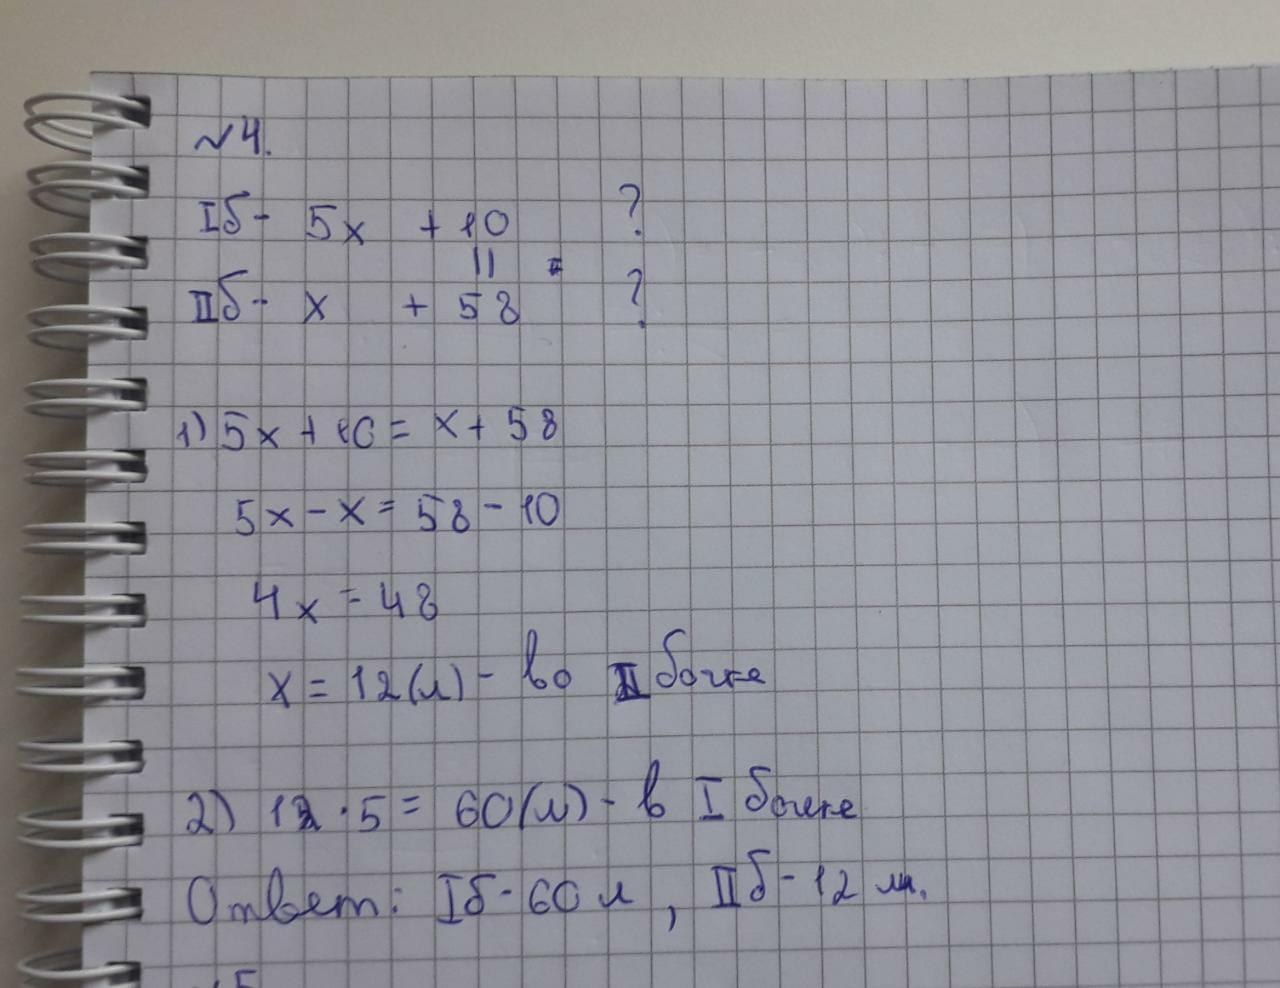 №4.
Iб - 5x + 10 ?
II =
IIб - x + 58 ?
1) 5x + 10 = x + 58
5x - x = 58 - 10
4x = 48
x = 12(л) - во II бочке
2) 12 · 5 = 60(л) - в I бочке
Ответ: Iб - 60 л, IIб - 12 л.